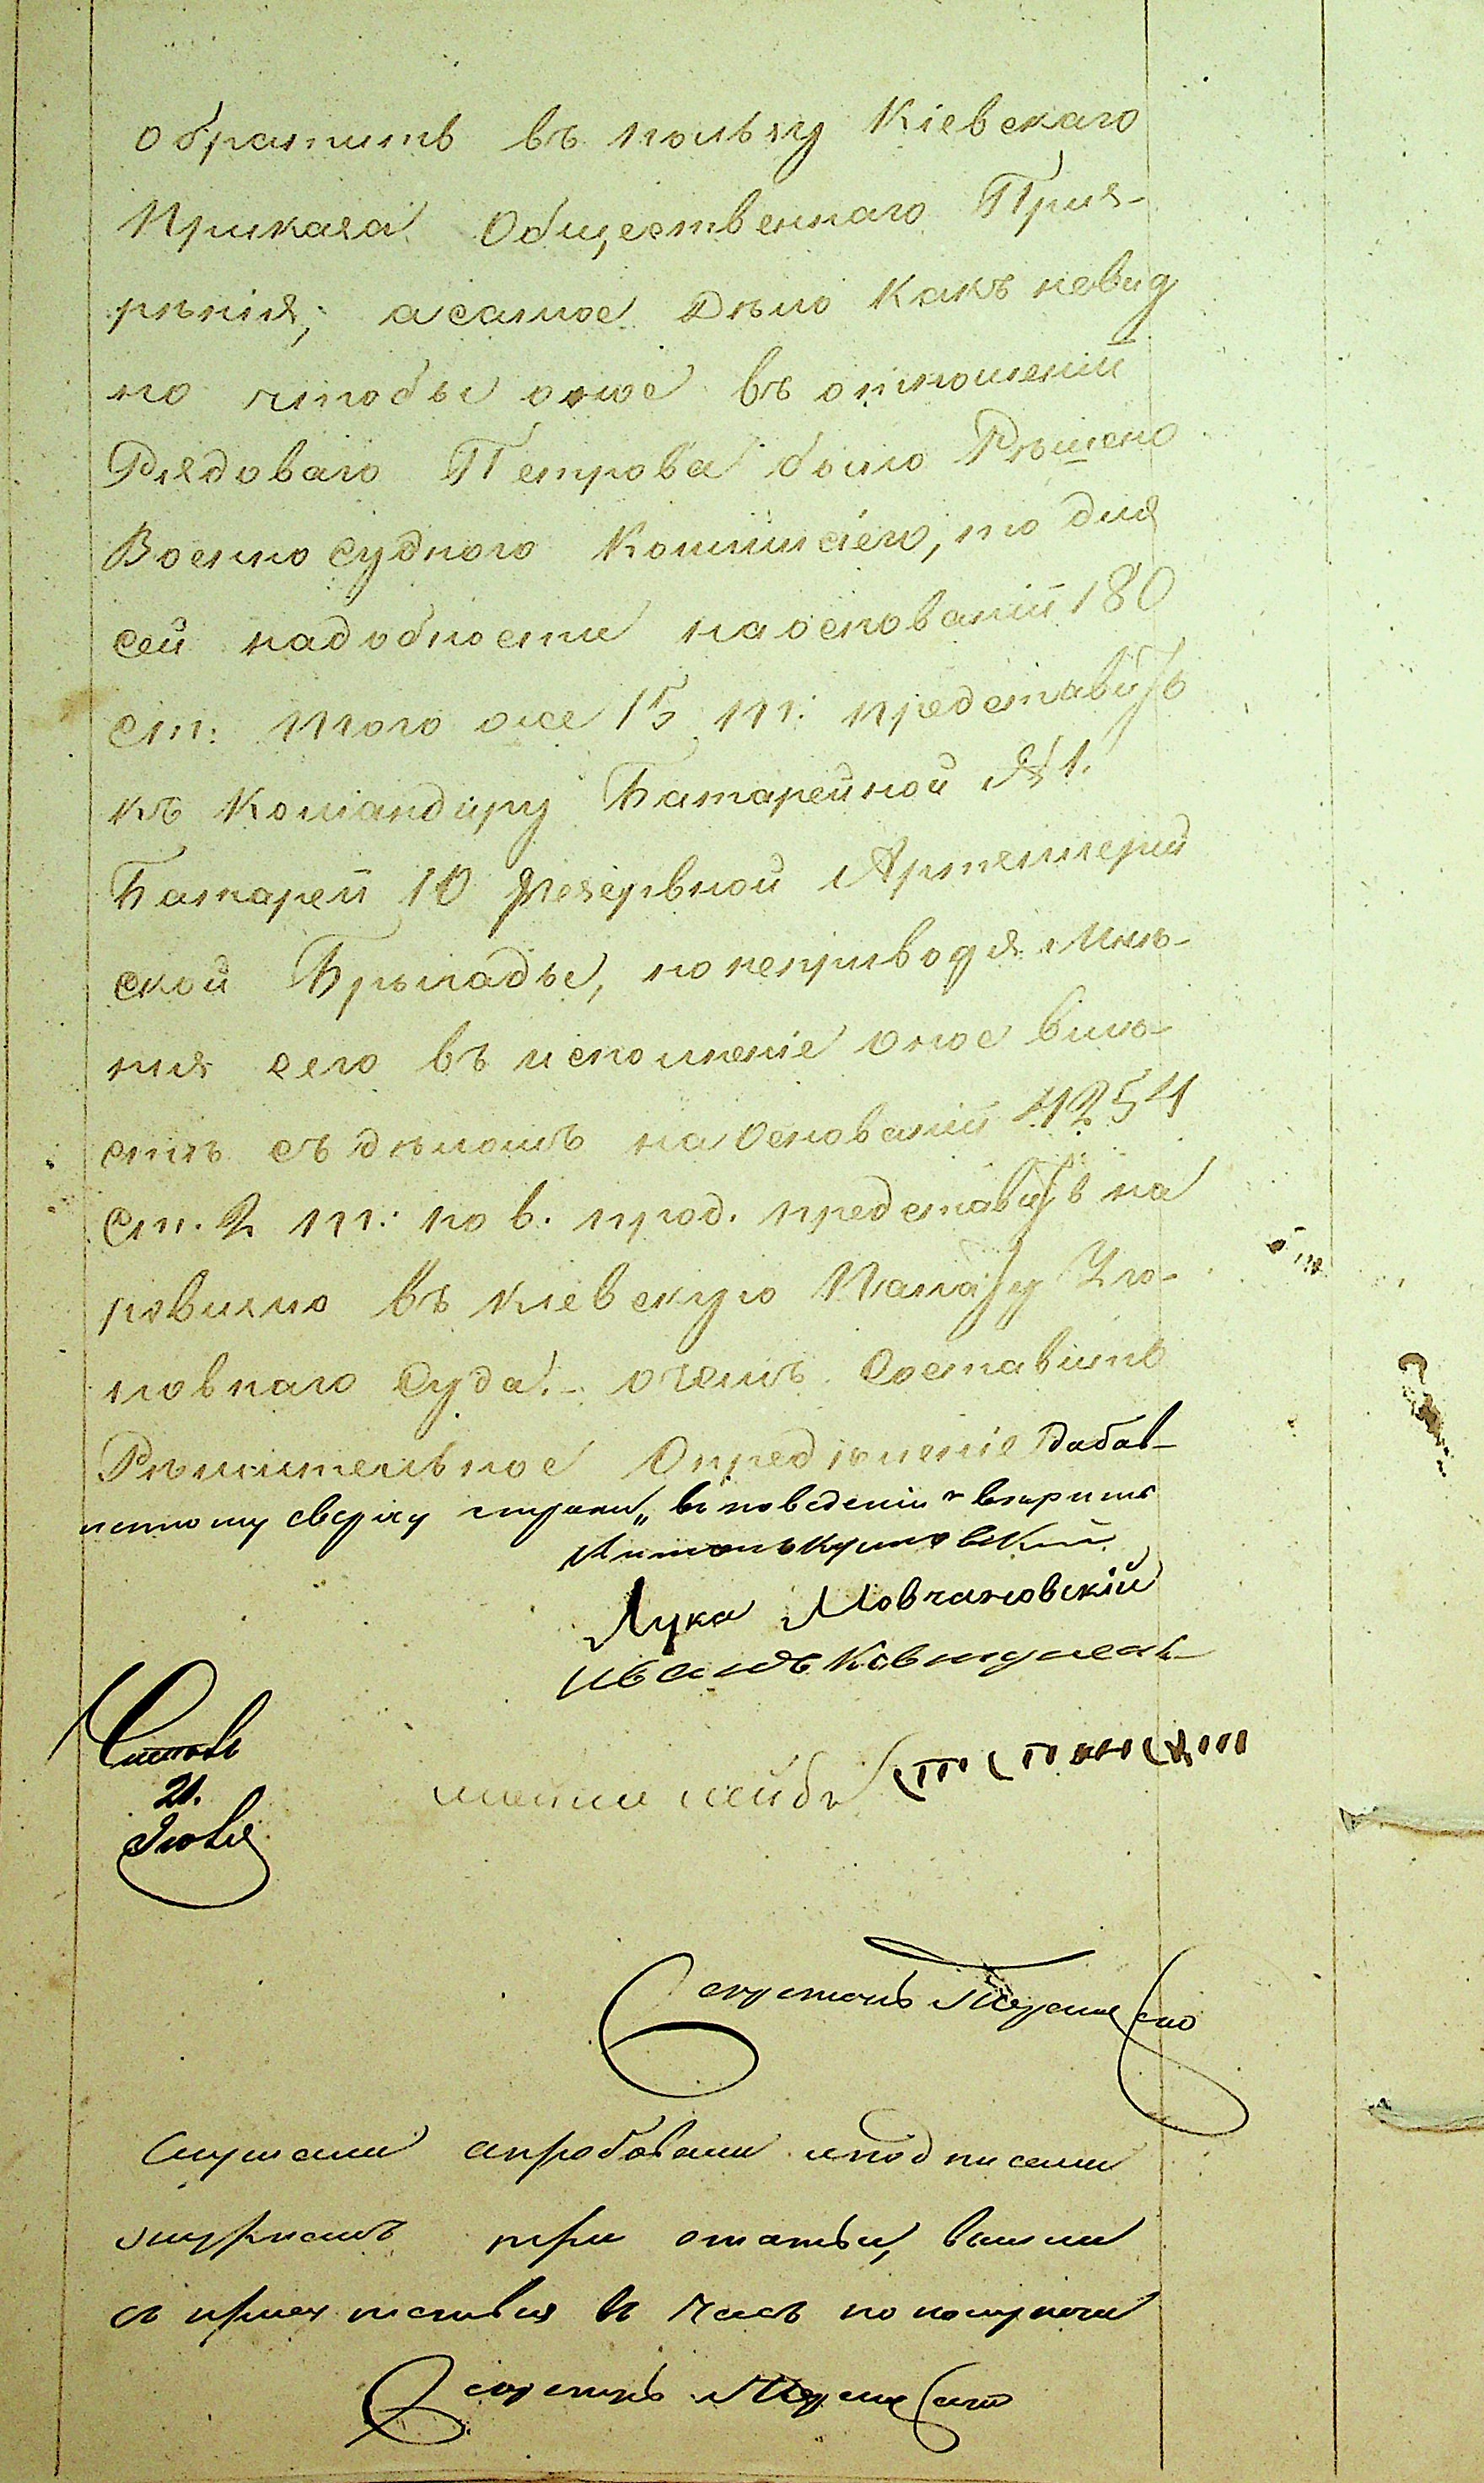 обратить въ пользу Кіевскаго
Приказа Общественнаго Приз-
рѣнія; а самое Дѣло Какъ невид
но чтобы оное въ отношеніи
Рядоваго Петрова было Рѣшено
Военно Судного Коммисіею, то для
сей надобности на основаніи 180
ст: того же 15 т: представить
къ Командиру Батарейной № 1.
Батареи 10 Резервной Артиллерій
ской Брыгады, но неприводя Мнѣ-
нія сего въ исполненіе оное вмѣ-
стѣ съ дѣломъ на Основаніи 4254
ст. 2 т: по 6. прод. представить на
ревизію въ Кіевскую Палату Уго-
ловнаго Суда. - о чемъ Составить
Рѣшительное Опредѣленіе Добав-
ленному сверху строки „въ поведеніи
Лука Мовчановскій
Иванъ
Читалъ
21.
Іюля
Секретарь
Слушали апробовали и подписали
журналъ три статьи, вышли
съ присутствія въ часъ по полудни
Секретарь